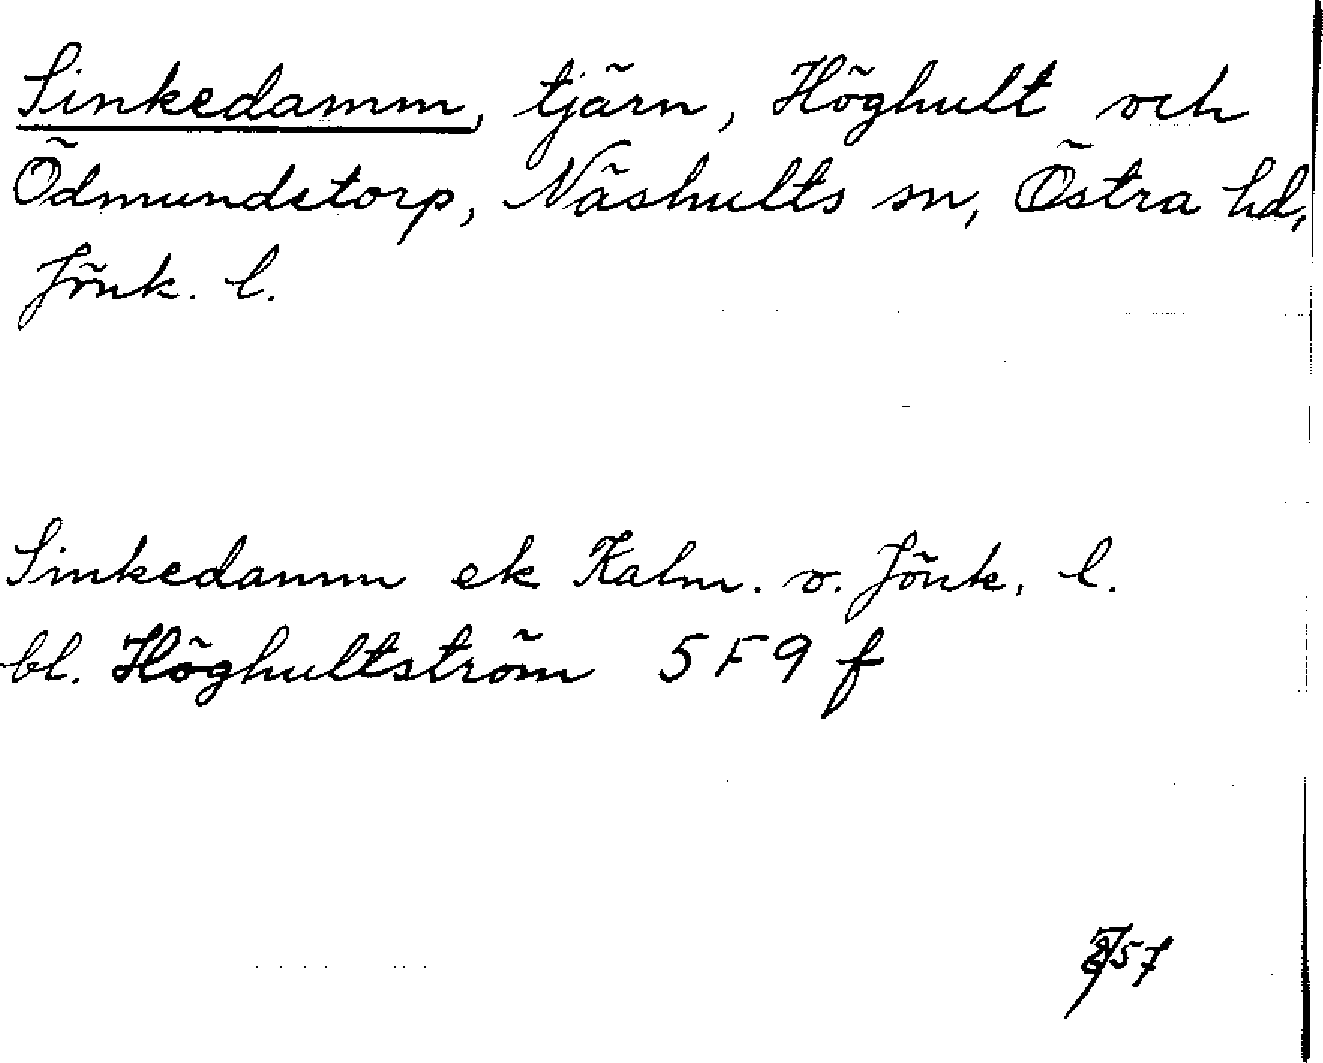 Sinkedamm, tjärn, Höghult och
Ödmundetorp, Näshults sn, Östra hd,
Jönk. l.
Sinkedamm ek Kalm. o. Jönk. l.
bl. Höghultström 5F9f
57